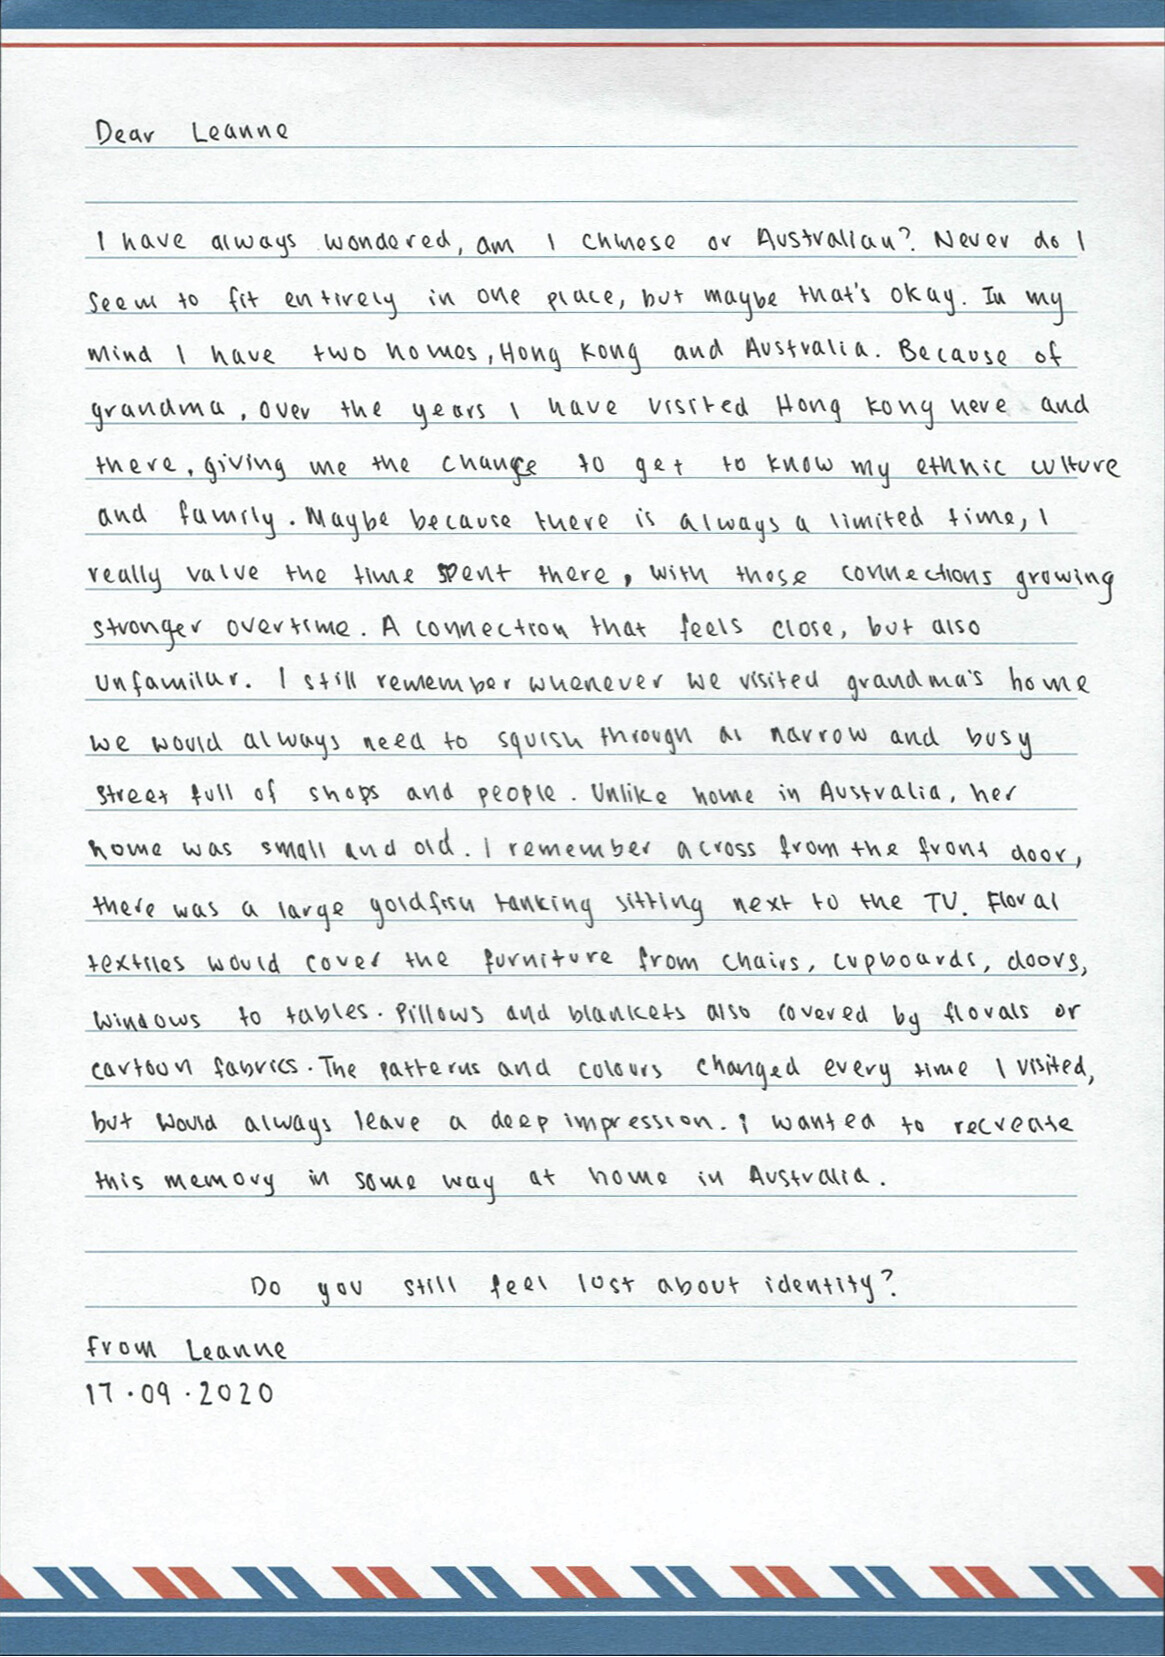 Dear Leanne
I have always wondered, am I Chinese or Australian? Never do I
seem to fit entirely in one place, but maybe that's okay. In my
mind I have two homes, Hong Kong and Australia. Because of
grandma, over the years I have visited Hong Kong here and
there, giving me the change to get to know my ethnic culture
and family. Maybe because there is always a limited time, I
really value the time spent there, with those connections growing
stronger overtime. A connection that feels close, but also
unfamilar. I still remember whenever we visited grandma's home
we would always need to squish through a narrow and busy
street full of shops and people. Unlike home in Australia, her
home was small and old. I remember across from the front door,
there was a large goldfish tanking sitting next to the TV. Floral
textiles would cover the furniture from chairs, cupboards, doors,
windows to tables. Pillows and blankets also covered by florals or
cartoon fabrics. The patterns and colours changed every time I visited,
but would always leave a deep impression. i wanted to recreate
this memory in some way at home in Australia.
Do you still feel lost about identity?
From Leanne
17.09.2020